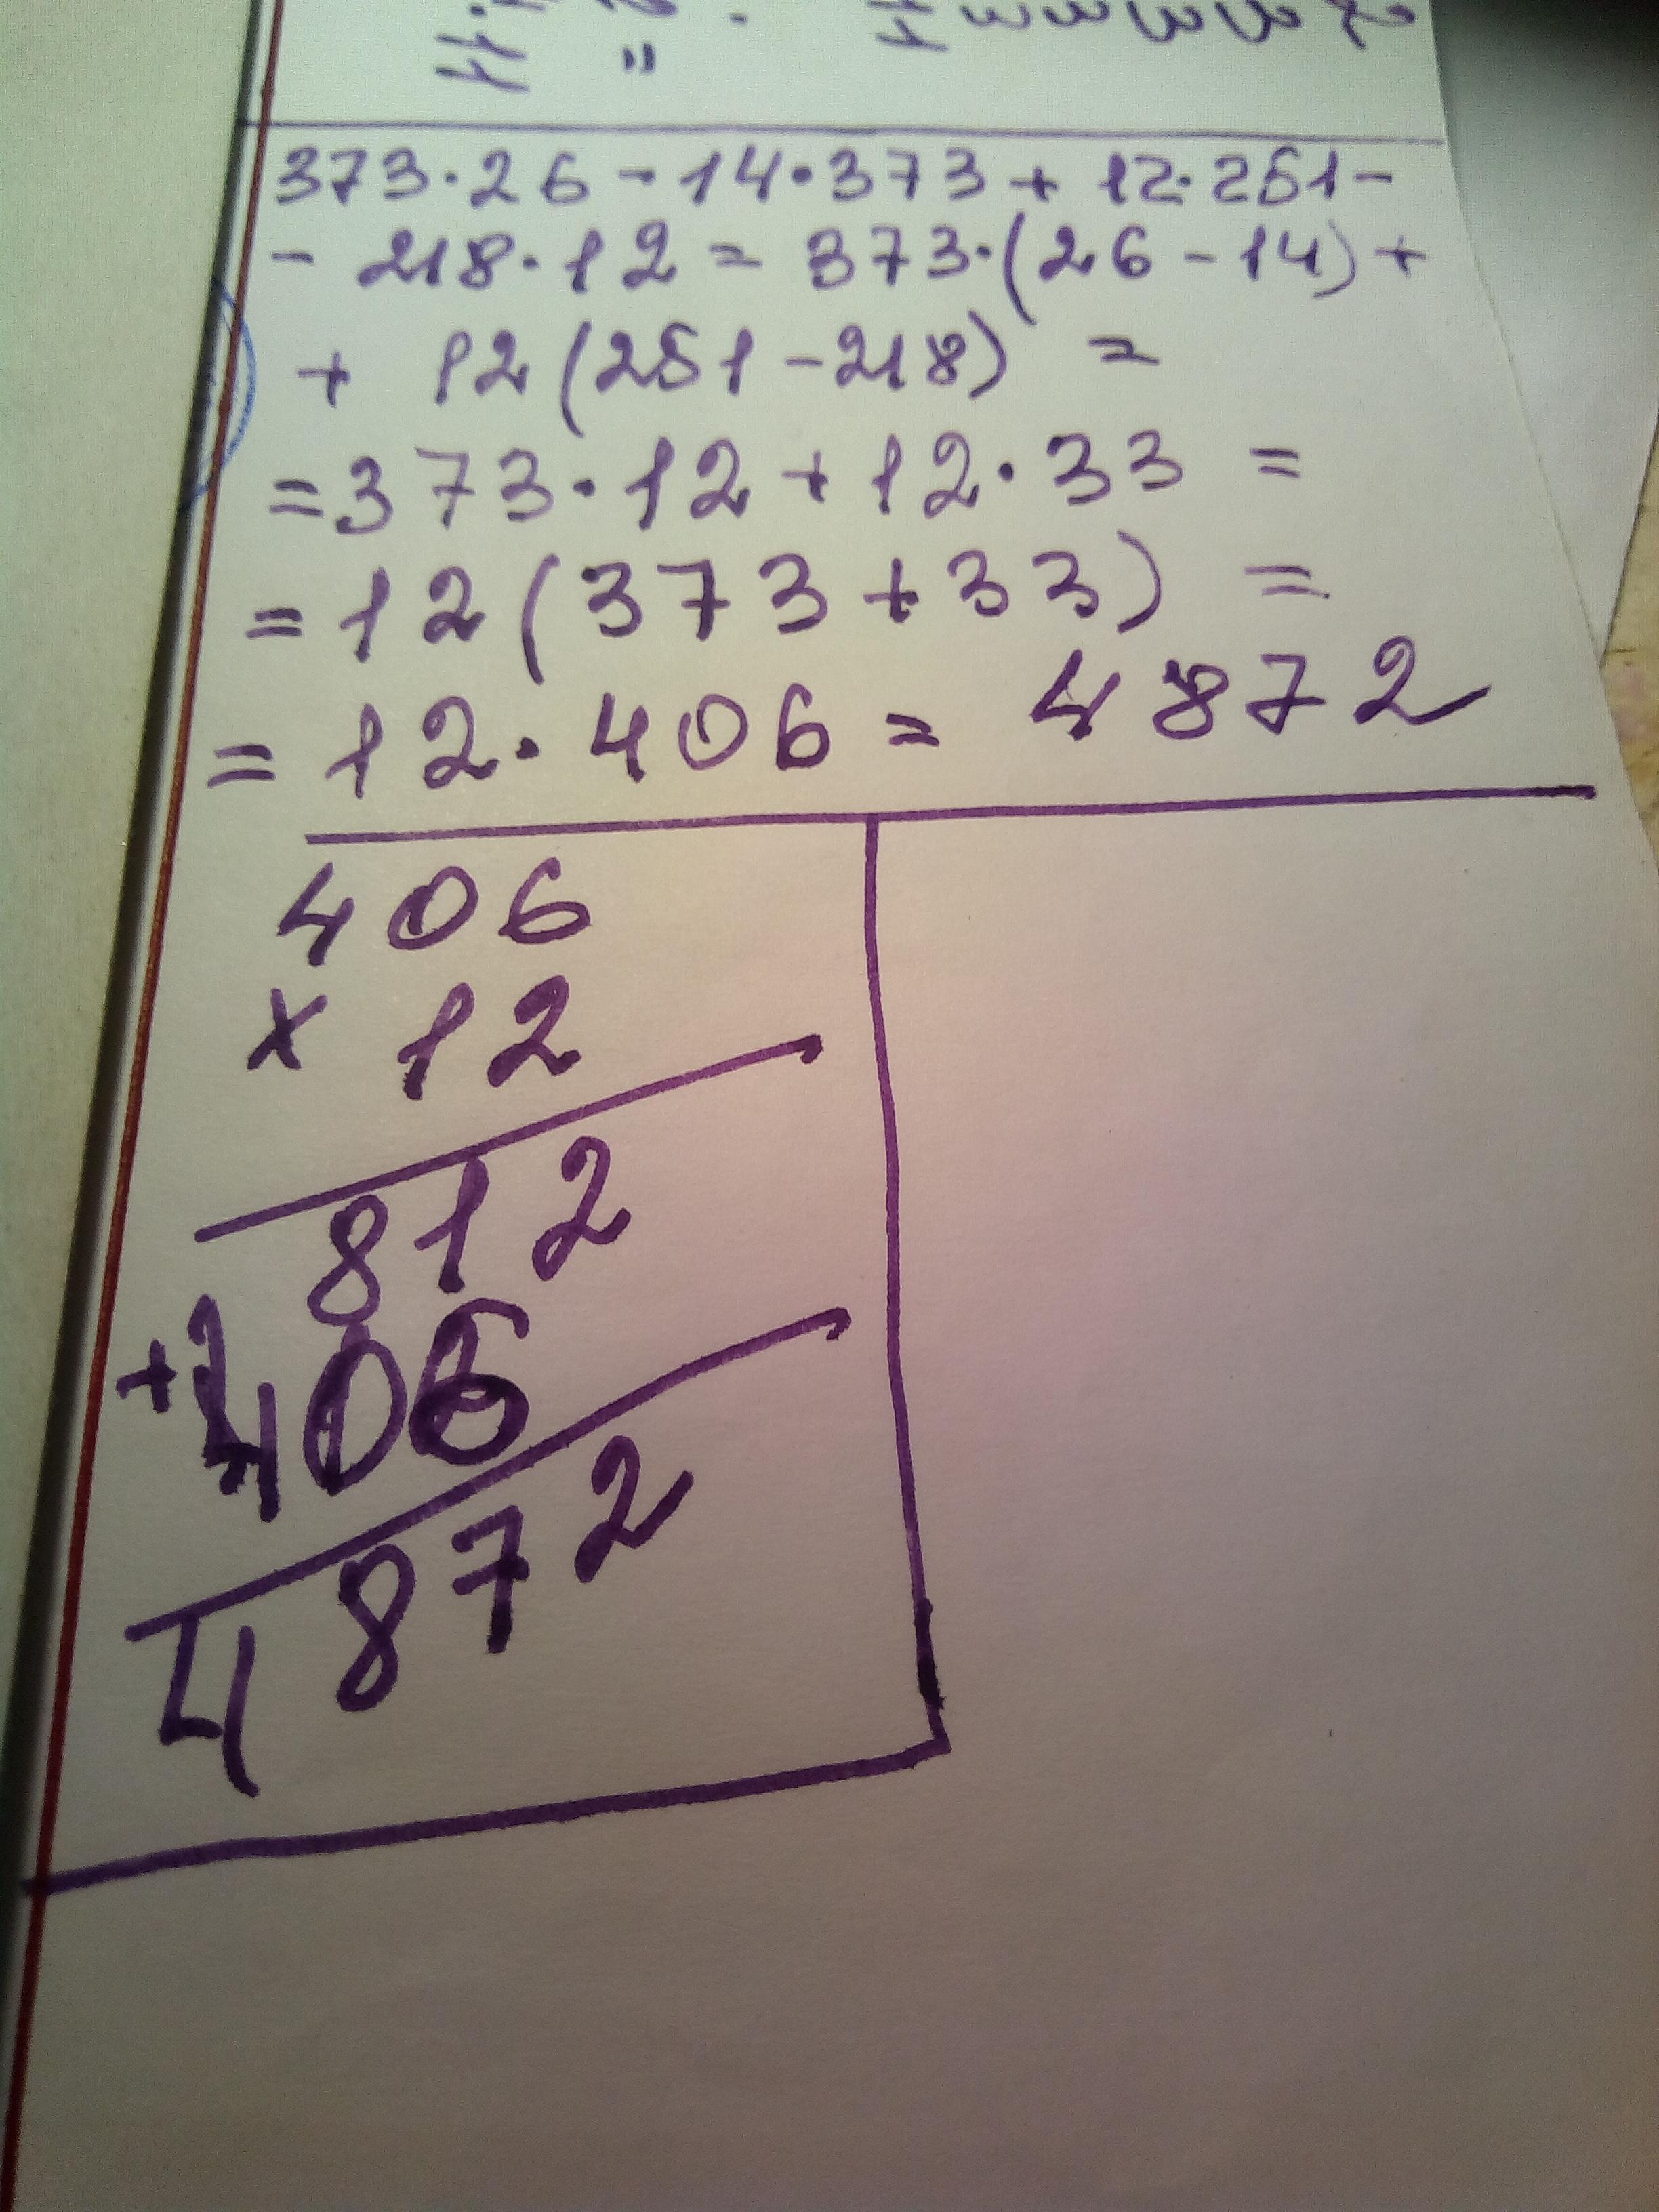 373·26-14·373+12·251-
-218·12=373·(26-14)+
+ 12(251-218) =
=373·12+12·33=
=12(373+33)=
=12·406=4872
406
x 12
812
+406
4872